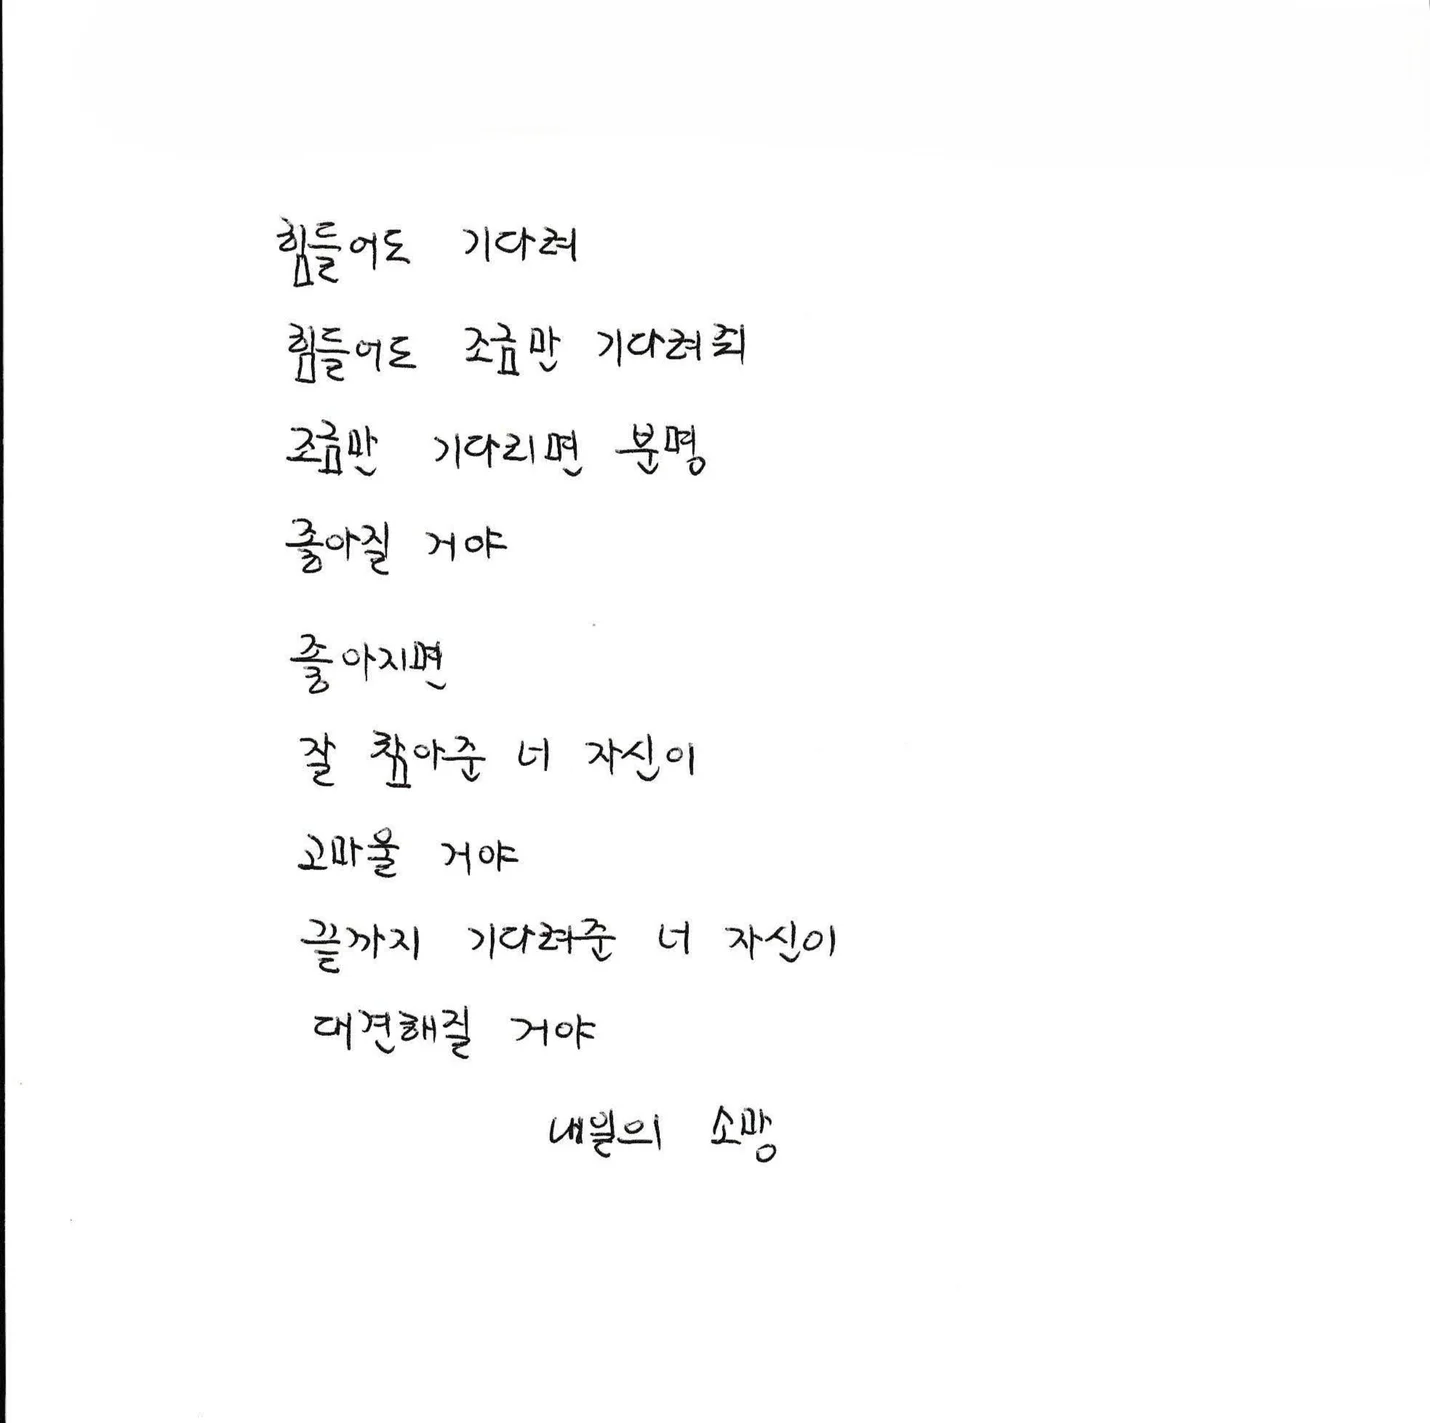 힘들어도 기다려
힘들어도 조금만 기다려줘
조금만 기다리면 분명
좋아질 거야
좋아지면
잘 참아준 너 자신이
고마울 거야
끝까지 기다려준 너 자신이
대견해질 거야
내일의 소망